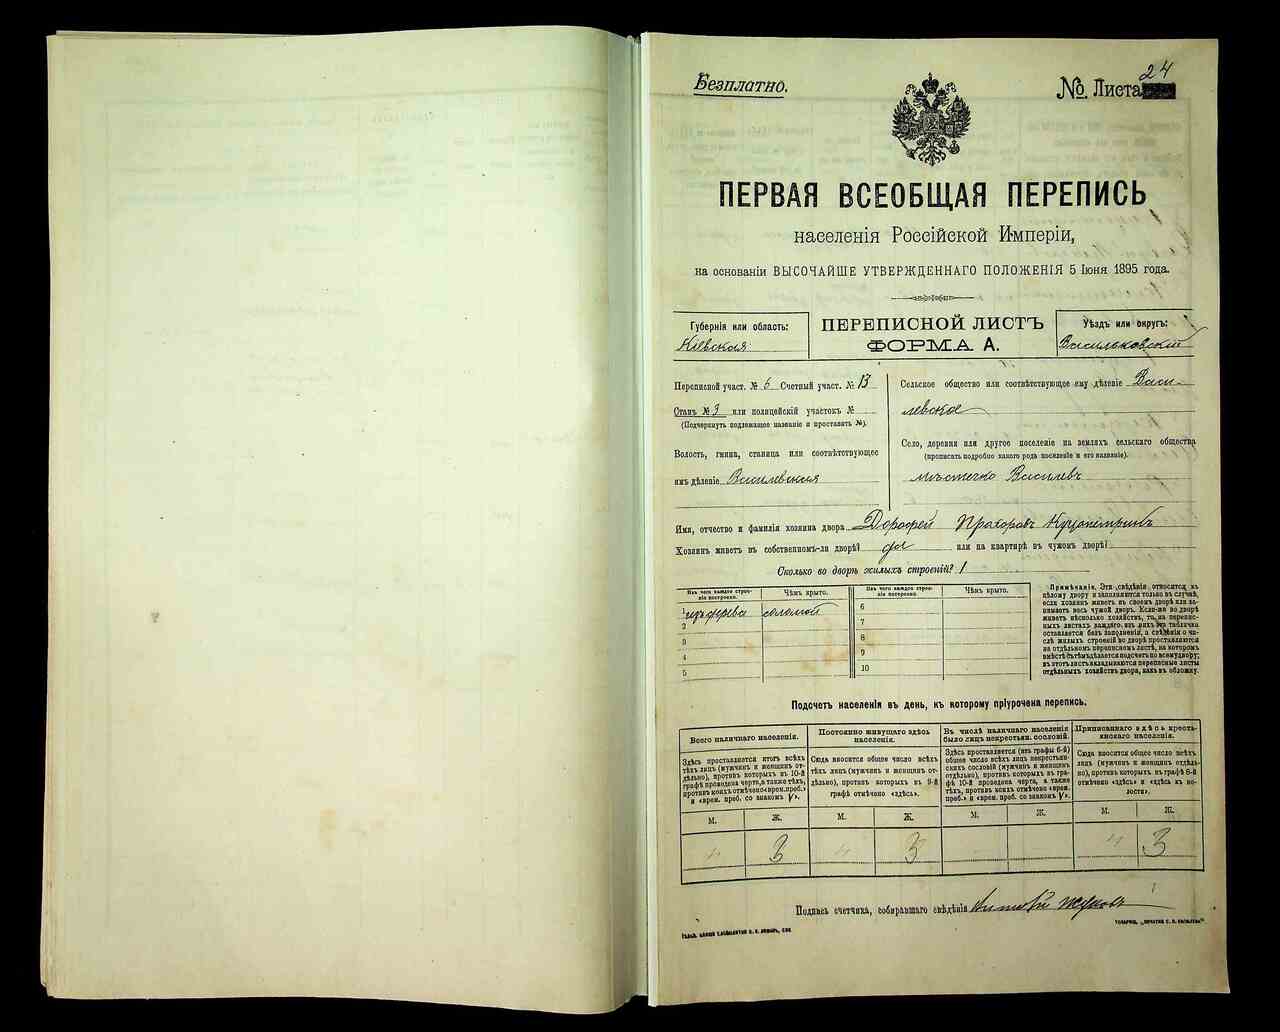 Безплатно.
24
№. Листа
ПЕРВАЯ ВСЕОБЩАЯ ПЕРЕПИСЬ
населенія Россійской Имперіи,
на основаніи ВЫСОЧАЙШЕ УТВЕРЖДЕННАГО ПОЛОЖЕНІЯ 5 Іюня 1895 года.
Губернія или область:
Кіевская
ПЕРЕПИСНОЙ ЛИСТЪ
ФОРМА А.
Уѣздъ или округъ:
Васильковскій
Переписной участ. № 6 Счетный участ. № 13
Станъ № 3 или полицейскій участокъ №
(Подчеркнуть подлежащее названіе и проставить №).
Волость, гмина, станица или соотвѣтствующее
имъ дѣленіе Василевская
Сельское общество или соотвѣтствующее ему дѣленіе Васи-
левское
Село, деревня или другое поселеніе на земляхъ сельскаго общества
(прописать подробно какого рода поселеніе и его названіе).
мѣстечко Василевъ
Имя, отчество и фамилія хозяина двора Дорофей Прохоровъ
Хозяинъ живетъ въ собственномъ-ли дворѣ? да или на квартирѣ въ чужомъ дворѣ?
Сколько во дворѣ жилыхъ строеній? 1
Изъ чего каждое строе-
ніе построено.
Чѣмъ крыто.
1 изъ дерева соломой
2
3
4
5
Изъ чего каждое строе-
ніе построено.
Чѣмъ крыто.
6
7
8
9
10
Примѣчаніе. Эти свѣдѣнія относятся къ
цѣлому двору и заполняются только въ случаѣ,
если хозяинъ живетъ въ своемъ дворѣ или за-
нимаетъ весь чужой дворъ. Если-же во дворѣ
живетъ нѣсколько хозяйствъ, то на перепис-
ныхъ листахъ каждаго изъ нихъ эта табличка
оставляется безъ заполненія, а свѣдѣнія о чи-
слѣ жилыхъ строеній во дворѣ проставляются
на отдѣльномъ переписномъ листѣ, на которомъ
вмѣстѣ съ тѣмъ дѣлается подсчетъ по всему двору;
въ этотъ листъ вкладываются переписные листы
отдѣльныхъ хозяйствъ двора, какъ въ обложку.
Подсчетъ населенія въ день, къ которому пріурочена перепись.
Всего наличнаго населенія.
Здѣсь проставляется итогъ всѣхъ
тѣхъ лицъ (мужчинъ и женщинъ от-
дѣльно), противъ которыхъ въ 10-й
графѣ проведена черта, а также тѣхъ,
противъ коихъ отмѣчено «врем. преб.»
и «врем. преб. со знакомъ V».
М. Ж.
4 3
Постоянно живущаго здѣсь
населенія.
Сюда вносится общее число всѣхъ
тѣхъ лицъ (мужчинъ и женщинъ от-
дѣльно), противъ которыхъ въ 9-й
графѣ отмѣчено «здѣсь».
М. Ж.
4 3
Въ числѣ наличнаго населенія
было лицъ некрестьян. сословій.
Здѣсь проставляется (изъ графы 6-й)
общее число всѣхъ лицъ некрестьян-
скихъ сословій (мужчинъ и женщинъ
отдѣльно), противъ которыхъ въ гра-
фѣ 10-й проведена черта, а также
тѣхъ, противъ коихъ отмѣчено «врем.
преб.» и «врем. преб. со знакомъ V».
М. Ж.
Приписаннаго здѣсь кресть-
янскаго населенія.
Сюда вносится общее число всѣхъ
лицъ (мужчинъ и женщинъ отдѣль-
но), противъ которыхъ въ графѣ 8-й
отмѣчено «здѣсь» и «здѣсь къ во-
лости».
М. Ж.
4 3
Подпись счетчика, собиравшаго свѣдѣнія